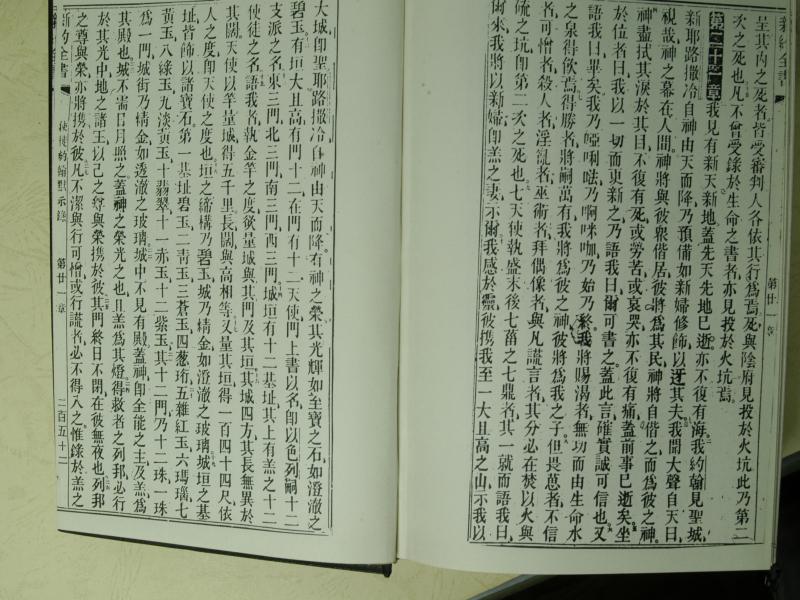 新約全書
第廿一章
呈其內之死者皆受審判人各依其行爲焉死與陰府見投於火坑此乃第二
次之死也凡不曾受錄於生命之書者亦見投於火坑焉
第二十一章我見有新天新地蓋先天先地已逝亦不復有海我約翰見聖城
新耶路撒冷自神由天而降乃預備如新婦修飾以迓其夫我聞大聲自天曰
視哉神之幕在人間神將與彼衆偕居彼將爲其民神將自偕之而爲彼之神
神盡拭其淚於其目不復有死或勞苦或哀哭亦不復有痛蓋前事已逝矣坐
於位者曰我以一切而更新之乃語我曰爾可書之蓋此言確實誠可信也又
語我曰畢矣我乃啞唎㗑乃啊咪咖乃始乃終我將賜渴者無切而由生命水
之泉得飲焉得勝者將嗣萬有我將爲彼之神彼將爲我之子但畏葸者不信
者可憎者殺人者淫亂者巫術者拜偶像者與凡謊言者其分必在焚以火與
硫之坑卽第二次之死也七天使執盛末後七菑之七鼎者其一就而語我曰
爾來我將以新婦卽羔之妻示爾我感於靈彼携我至一大且高之山示我以
大城卽聖耶路撒冷自神由天而降有神之榮其光輝如至寶之石如澄澈之
碧玉有垣大且高有門十二在門有十二天使門上書以名卽以色列嗣十二
支派之名東三門北三門南三門西三門城垣有十二基址其上有羔之十二
使徒之名語我者執金竿之度欲量城與其門及其垣其城四方其長無異於
其闊天使以竿量城得五千里長闊與高相等又量其垣得一百四十四尺依
人之度卽天使之度也垣之締構乃碧玉城乃精金如澄澈之玻璃城垣之基
址皆飾以諸寶石第一基址碧玉二青玉三蒼玉四葱珩五雜紅玉六瑪瑙七
黃玉八綠玉九淡黃玉十翡翠十一赤玉十二紫玉其十二門乃十二珠一珠
爲一門城街乃精金如透澈之玻璃城中不見有殿蓋神卽全能之主及羔爲
其殿也城不需日月照之蓋神之榮光之也且羔爲其燈得救者之列邦必行
於其光中地之諸王以己之尊與榮携於彼其門終日不閉在彼無夜也列邦
之尊與榮亦將携於彼凡不潔與行可憎或行謊者必不得入之惟錄於羔之
新約全書
使徒約翰默示錄
第廿一章
二百五十二